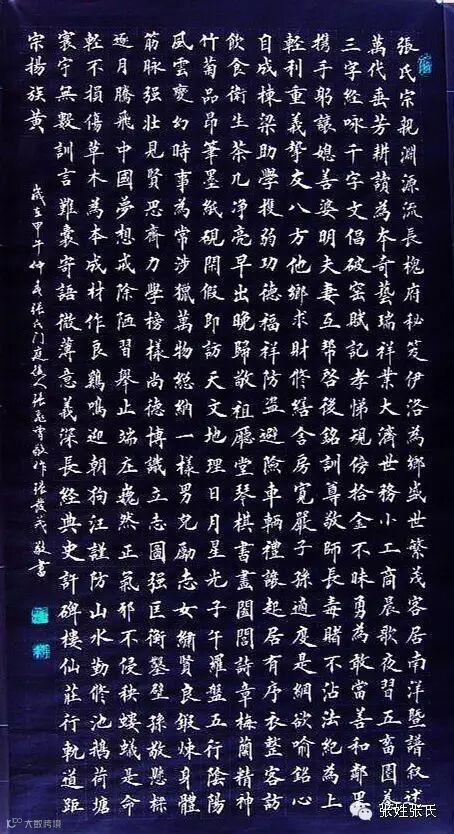 張氏宗親淵源流長槐府秘笈伊洛為鄉盛世繁茂客居南洋暨譜叙謀
萬代垂芳耕讀為本奇藝瑞祥業大濟世務小工商晨歌夜習五畜園養
三字經咏千字文倡破窑賦記孝悌規傍拾金不昧勇為敢當善和鄰里
携手躬讓媳善婆明夫妻互幫啓後銘訓尊敬師長毒賭不沾法紀為上
輕利重義摯友八方他鄉求財修繕舍房寬嚴子孫適度是綱欲喻銘心
自成棟梁助學携弱功德福祥防盗避險車輛禮讓起居有序衣整客訪
飲食衛生茶几净亮早出晚歸敬祖廳堂琴棋書畫閨閣詩章梅蘭精神
竹菊品昂筆墨紙硯閑假即訪天文地理日月星光子午羅盤五行陰陽
風雲變幻時事為常涉獵萬物總納一樣男兒勵志女綉賢良鍛煉身體
筋脉强壮見賢思齊力學榜樣尚德博識立志圖强匡衡鑿壁孫敬懸樑
逐月騰飛中國夢想戒除陋習舉止端庄巍然正氣邪不侵秧螻蟻是命
輕不損傷草木為本成材作良鷄鳴迎朝狗汪謹防山水勤修池鵝荷塘
寰宇無數訓言難囊寄語微薄意義深長經典史許碑樓仙莊行軌道距
宗揚族黄
歲在甲午仲春張氏門庭後人張敬作張茂敬書
张姓张氏
大数跨境